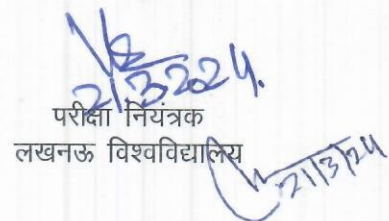 21/3/2024.
परीक्षा नियंत्रक
लखनऊ विश्वविद्यालय
21/3/24